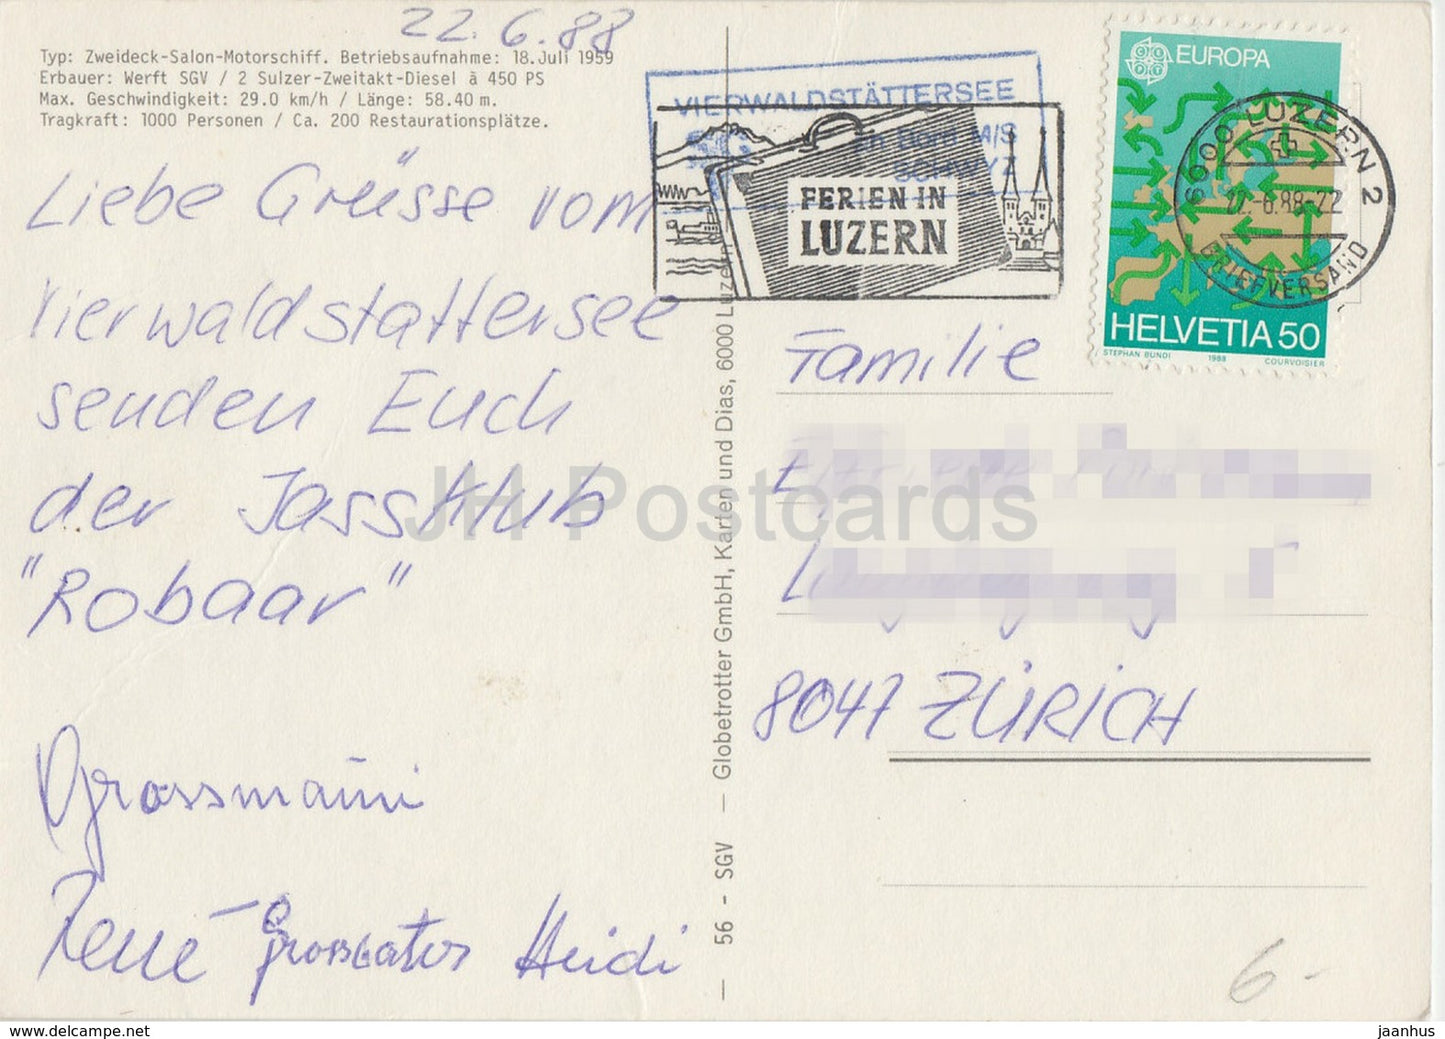 22.6.88
Typ: Zweideck-Salon-Motorschiff. Betriebsaufnahme: 18.Juli 1959
Erbauer: Werft SGV / 2 Sulzer-Zweitakt-Diesel à 450 PS
Max. Geschwindigkeit: 29.0 km/h / Länge: 58.40 m.
Tragkraft: 1000 Personen / Ca. 200 Restaurationsplätze.
Liebe Grüsse vom
Vierwaldstattersee
senden Euch
der JassKlub
"Robaar"
Grossmami
René Grossvater Heidi
VIERWALDSTÄTTERSEE
an Bord M/S
SCHWYZ
FERIEN IN
LUZERN
EUROPA
CEPT
HELVETIA 50
STEPHAN BUNDI 1988 COURVOISIER
6000 LUZERN 2
22.-6.88-22
BRIEFVERSAND
56 - SGV — Globetrotter GmbH, Karten und Dias, 6000 Luzern
Familie
8047 ZÜRICH
6-
JH Postcards
jaanhus
delcampe.net